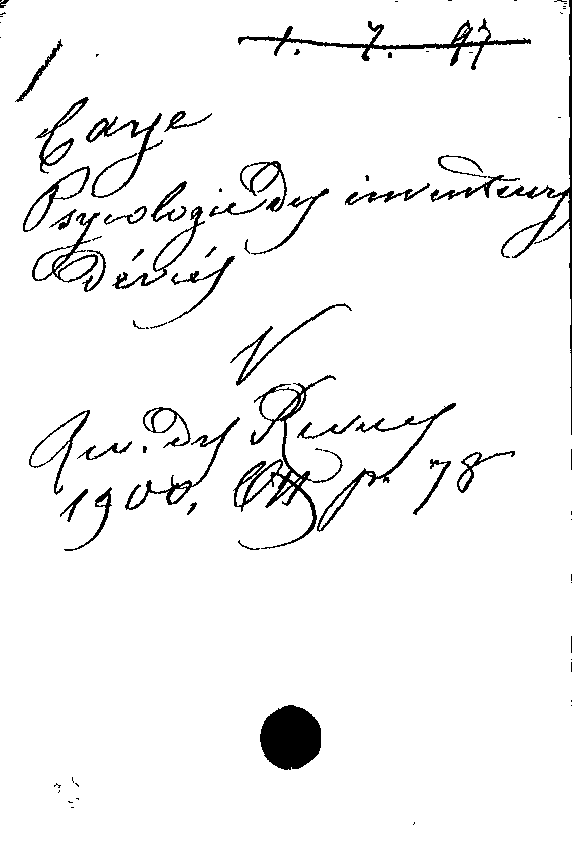 1. 7. 97
Carye
Psycologie des inventeurs
Déviés
V
Rev. des Revues
1900, p. 78